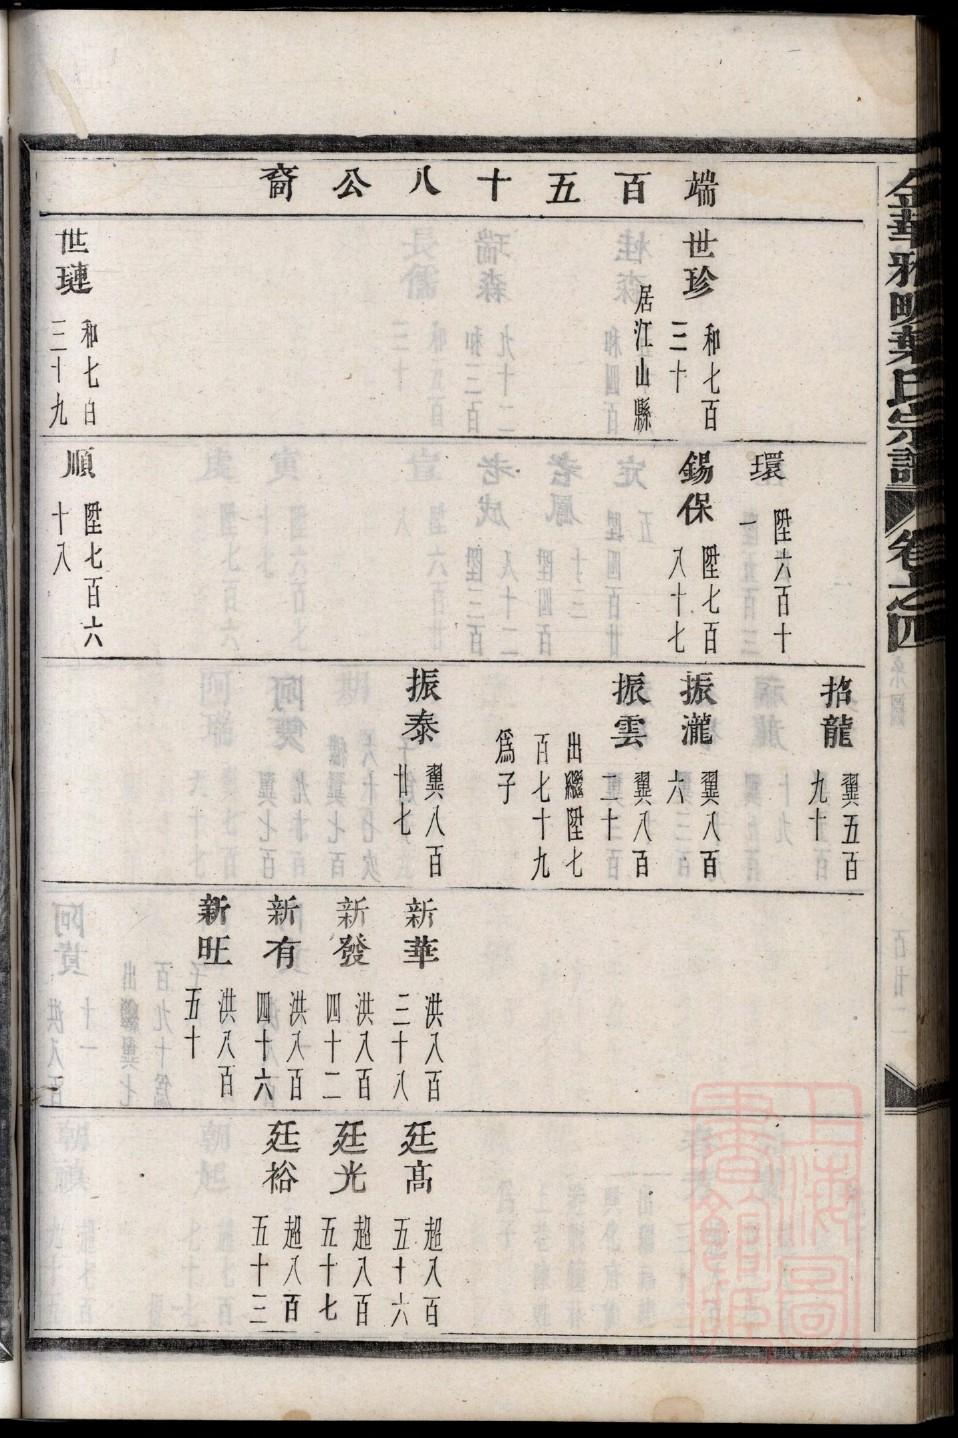 金華雅畈葉氏宗譜
卷之四
端百五十八公裔
世珍 和七百三十
居江山縣
世璉 和七百三十九
環 陞六百十一
錫保 陞七百八十七
順 陞七百六十八
招龍 翼五百九十
振瀧 翼八百六
振雲 翼八百二十
出繼陞七百七十九
爲子
振泰 翼八百廿七
新華 洪八百三十八
新發 洪八百四十二
新有 洪八百四十六
新旺 洪八百五十
廷高 超八百五十六
廷光 超八百五十七
廷裕 超八百五十三
上海圖書館藏